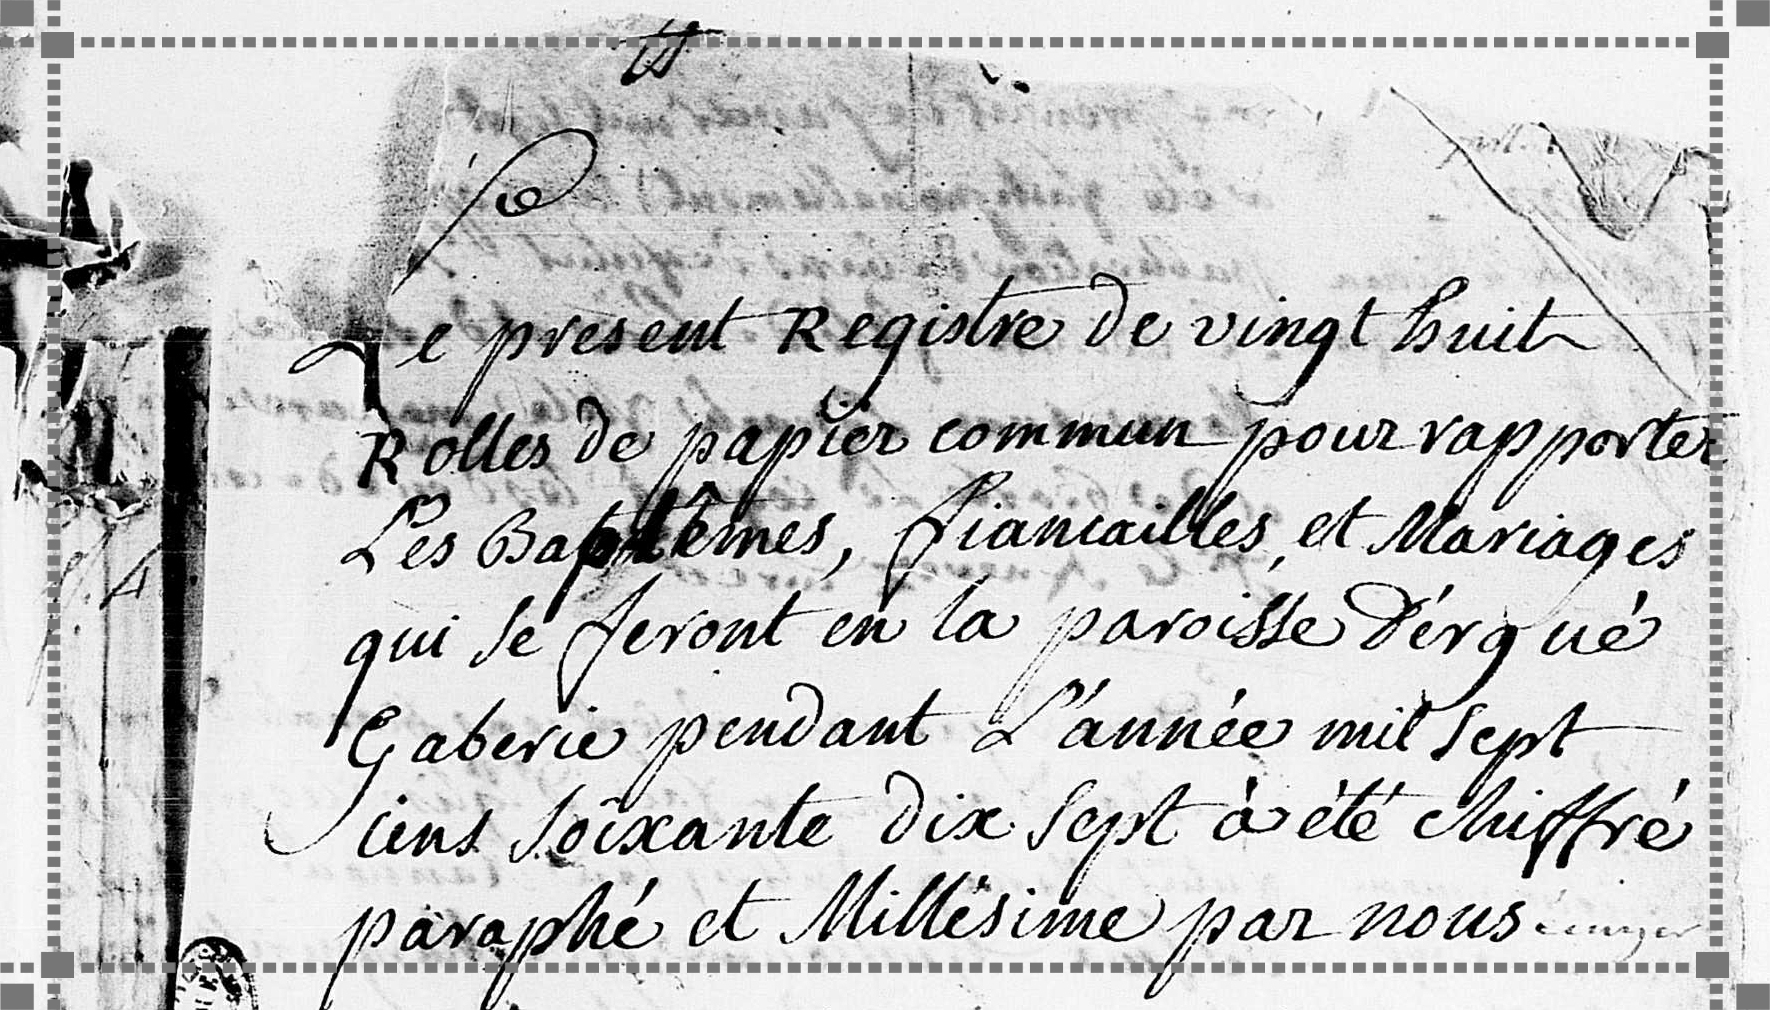 Le present Registre de vingt huit
Rolles de papier commun pour rapporter
Les Baptêmes, fiancailles, et Mariages
qui se feront en la paroisse d'érgué
Gaberie pendant L'année mil sept
cens soixante dix sept à été chiffré
paraphé et Millésime par nous